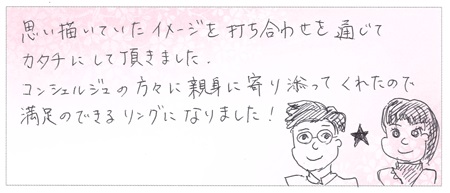 思い描いていたイメージを打ち合わせを通じて
カタチにして頂きました.
コンシェルジュの方々に親身に寄り添ってくれたので
満足のできるリングになりました！